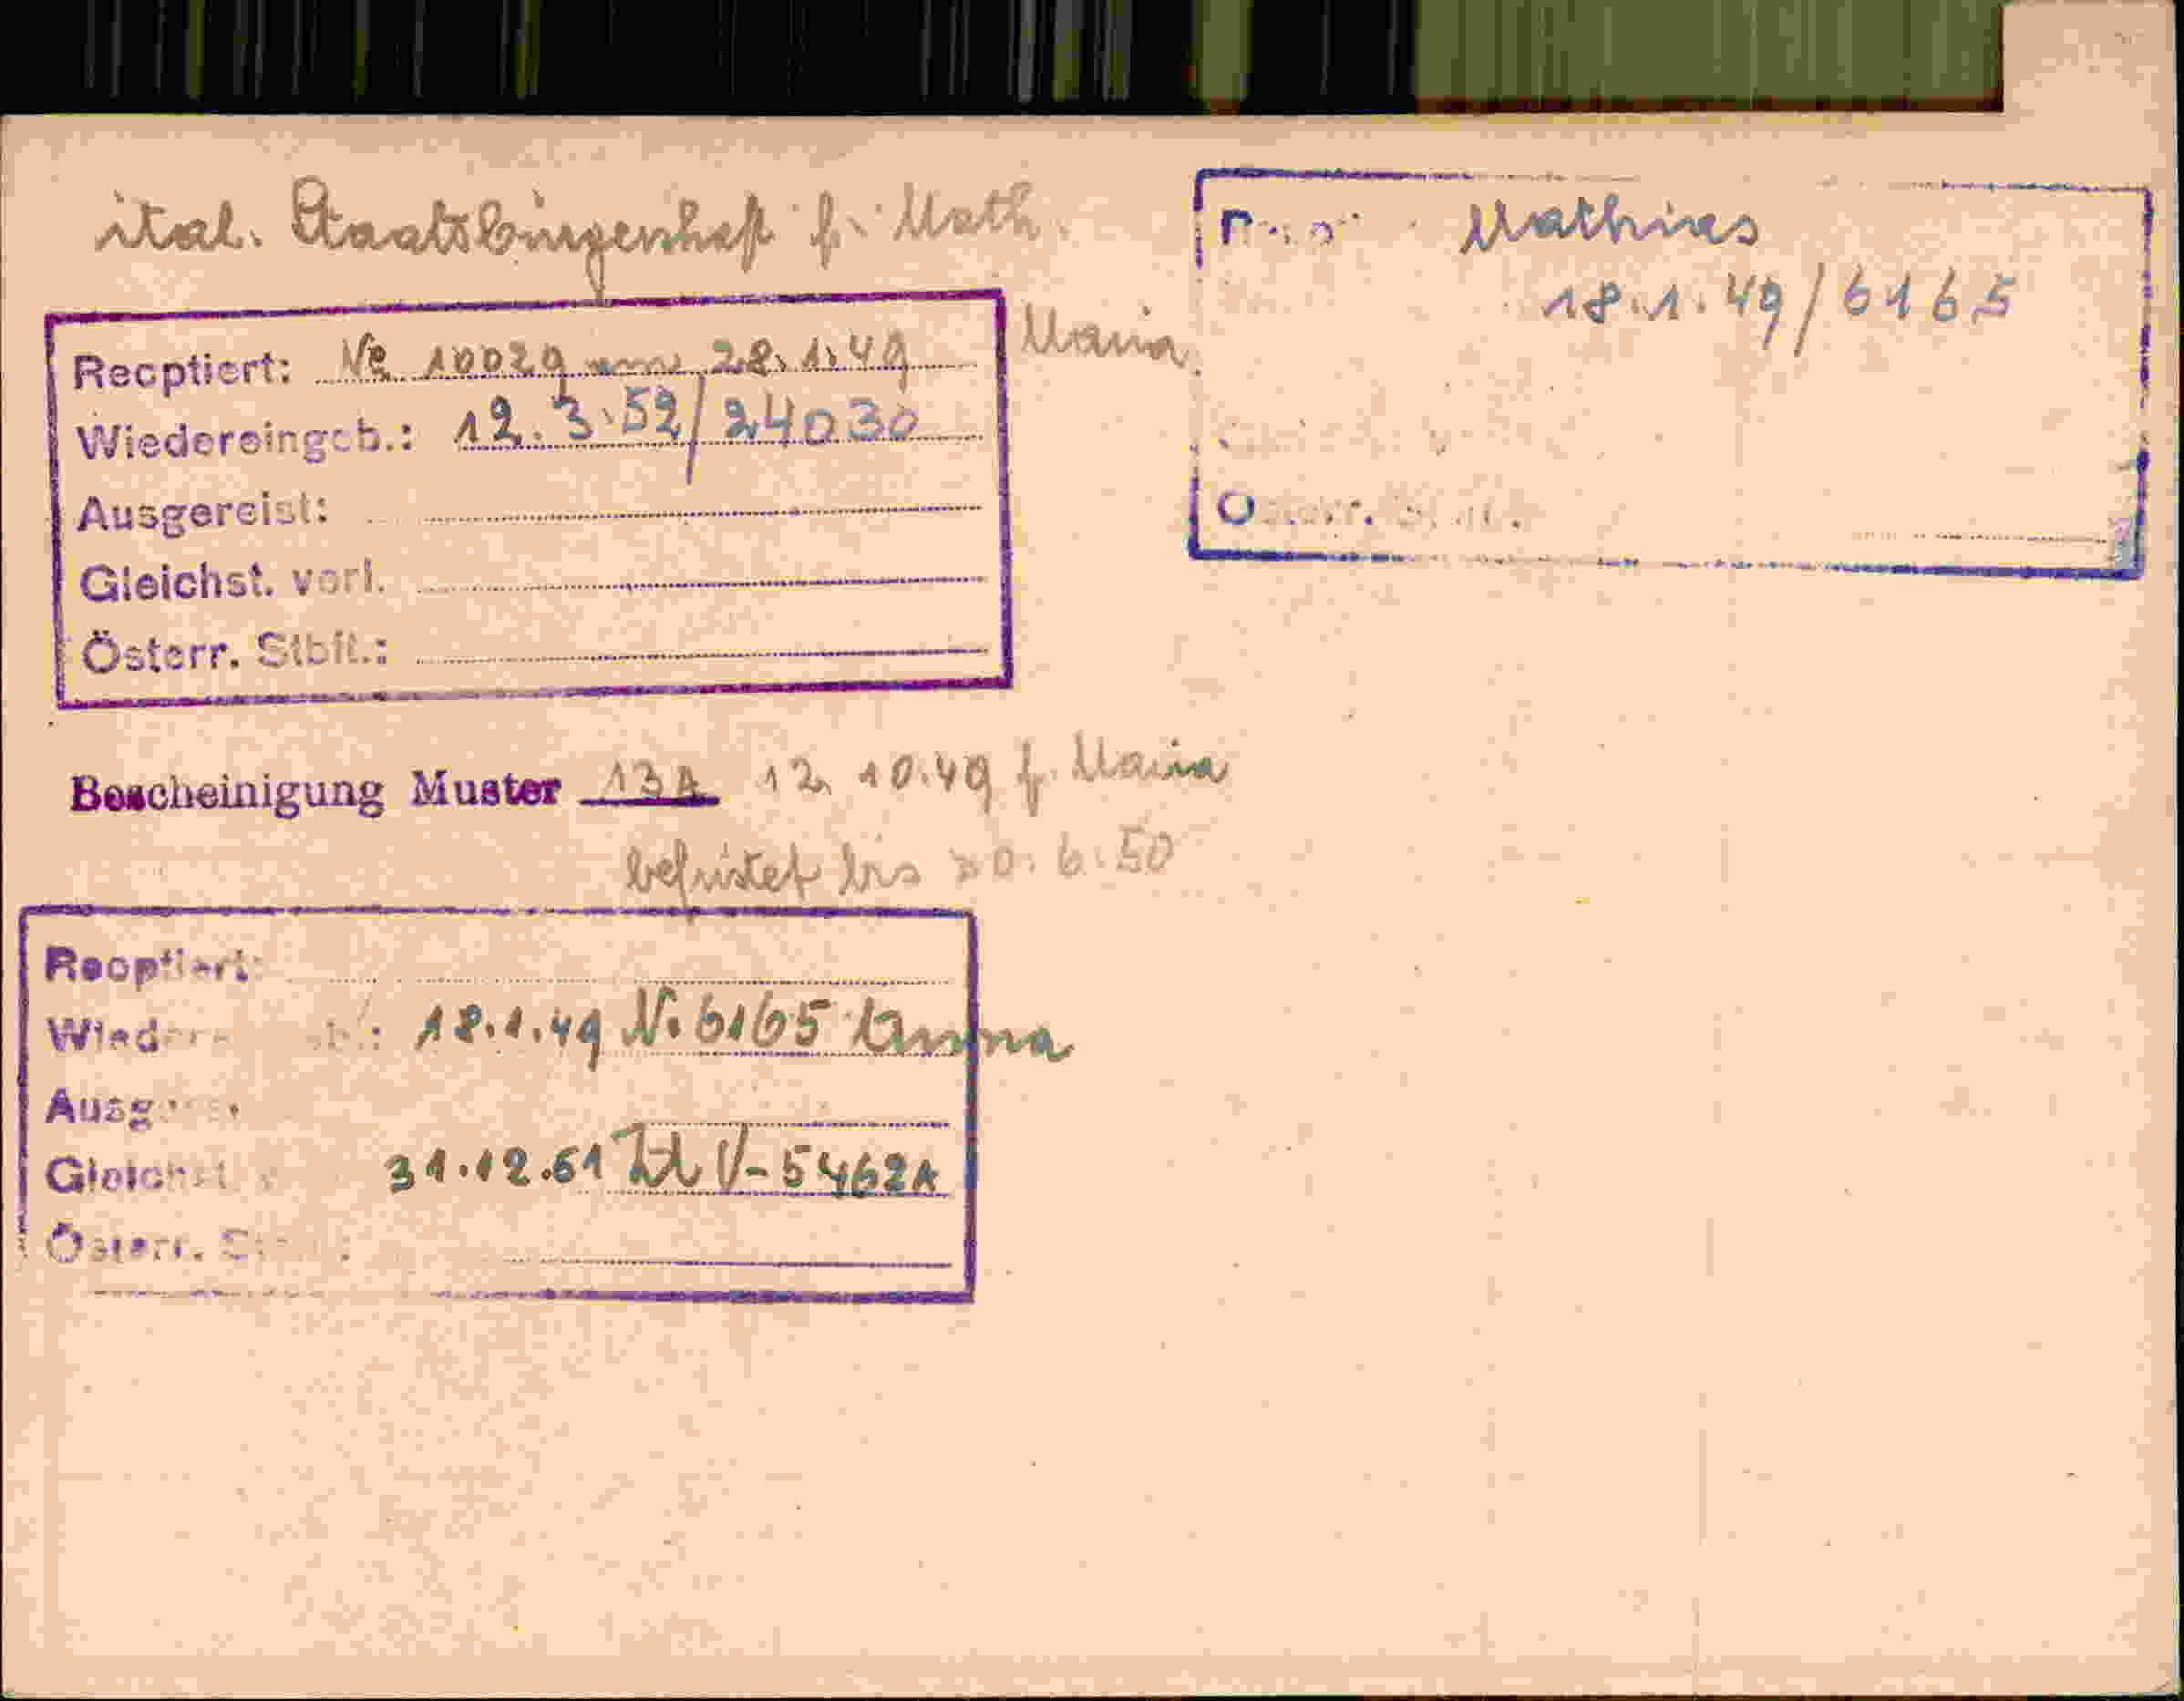 ital. Staatsbürgerschaft f. Math.
Recptiert: Nr. 10029 am 28.1.49 Maria
Wiedereingeb.: 12.3.52/24030
Ausgereist:
Gleichst. vorl.
Österr. Stbft.:
Mathias
18.1.49/6165
Bescheinigung Muster 13A 12.10.49 f. Maria
befristet bis 30.6.50
Recptiert:
18.1.49 Nr. 6165 Anna
31.12.61 Zl V-5462A
Österr.